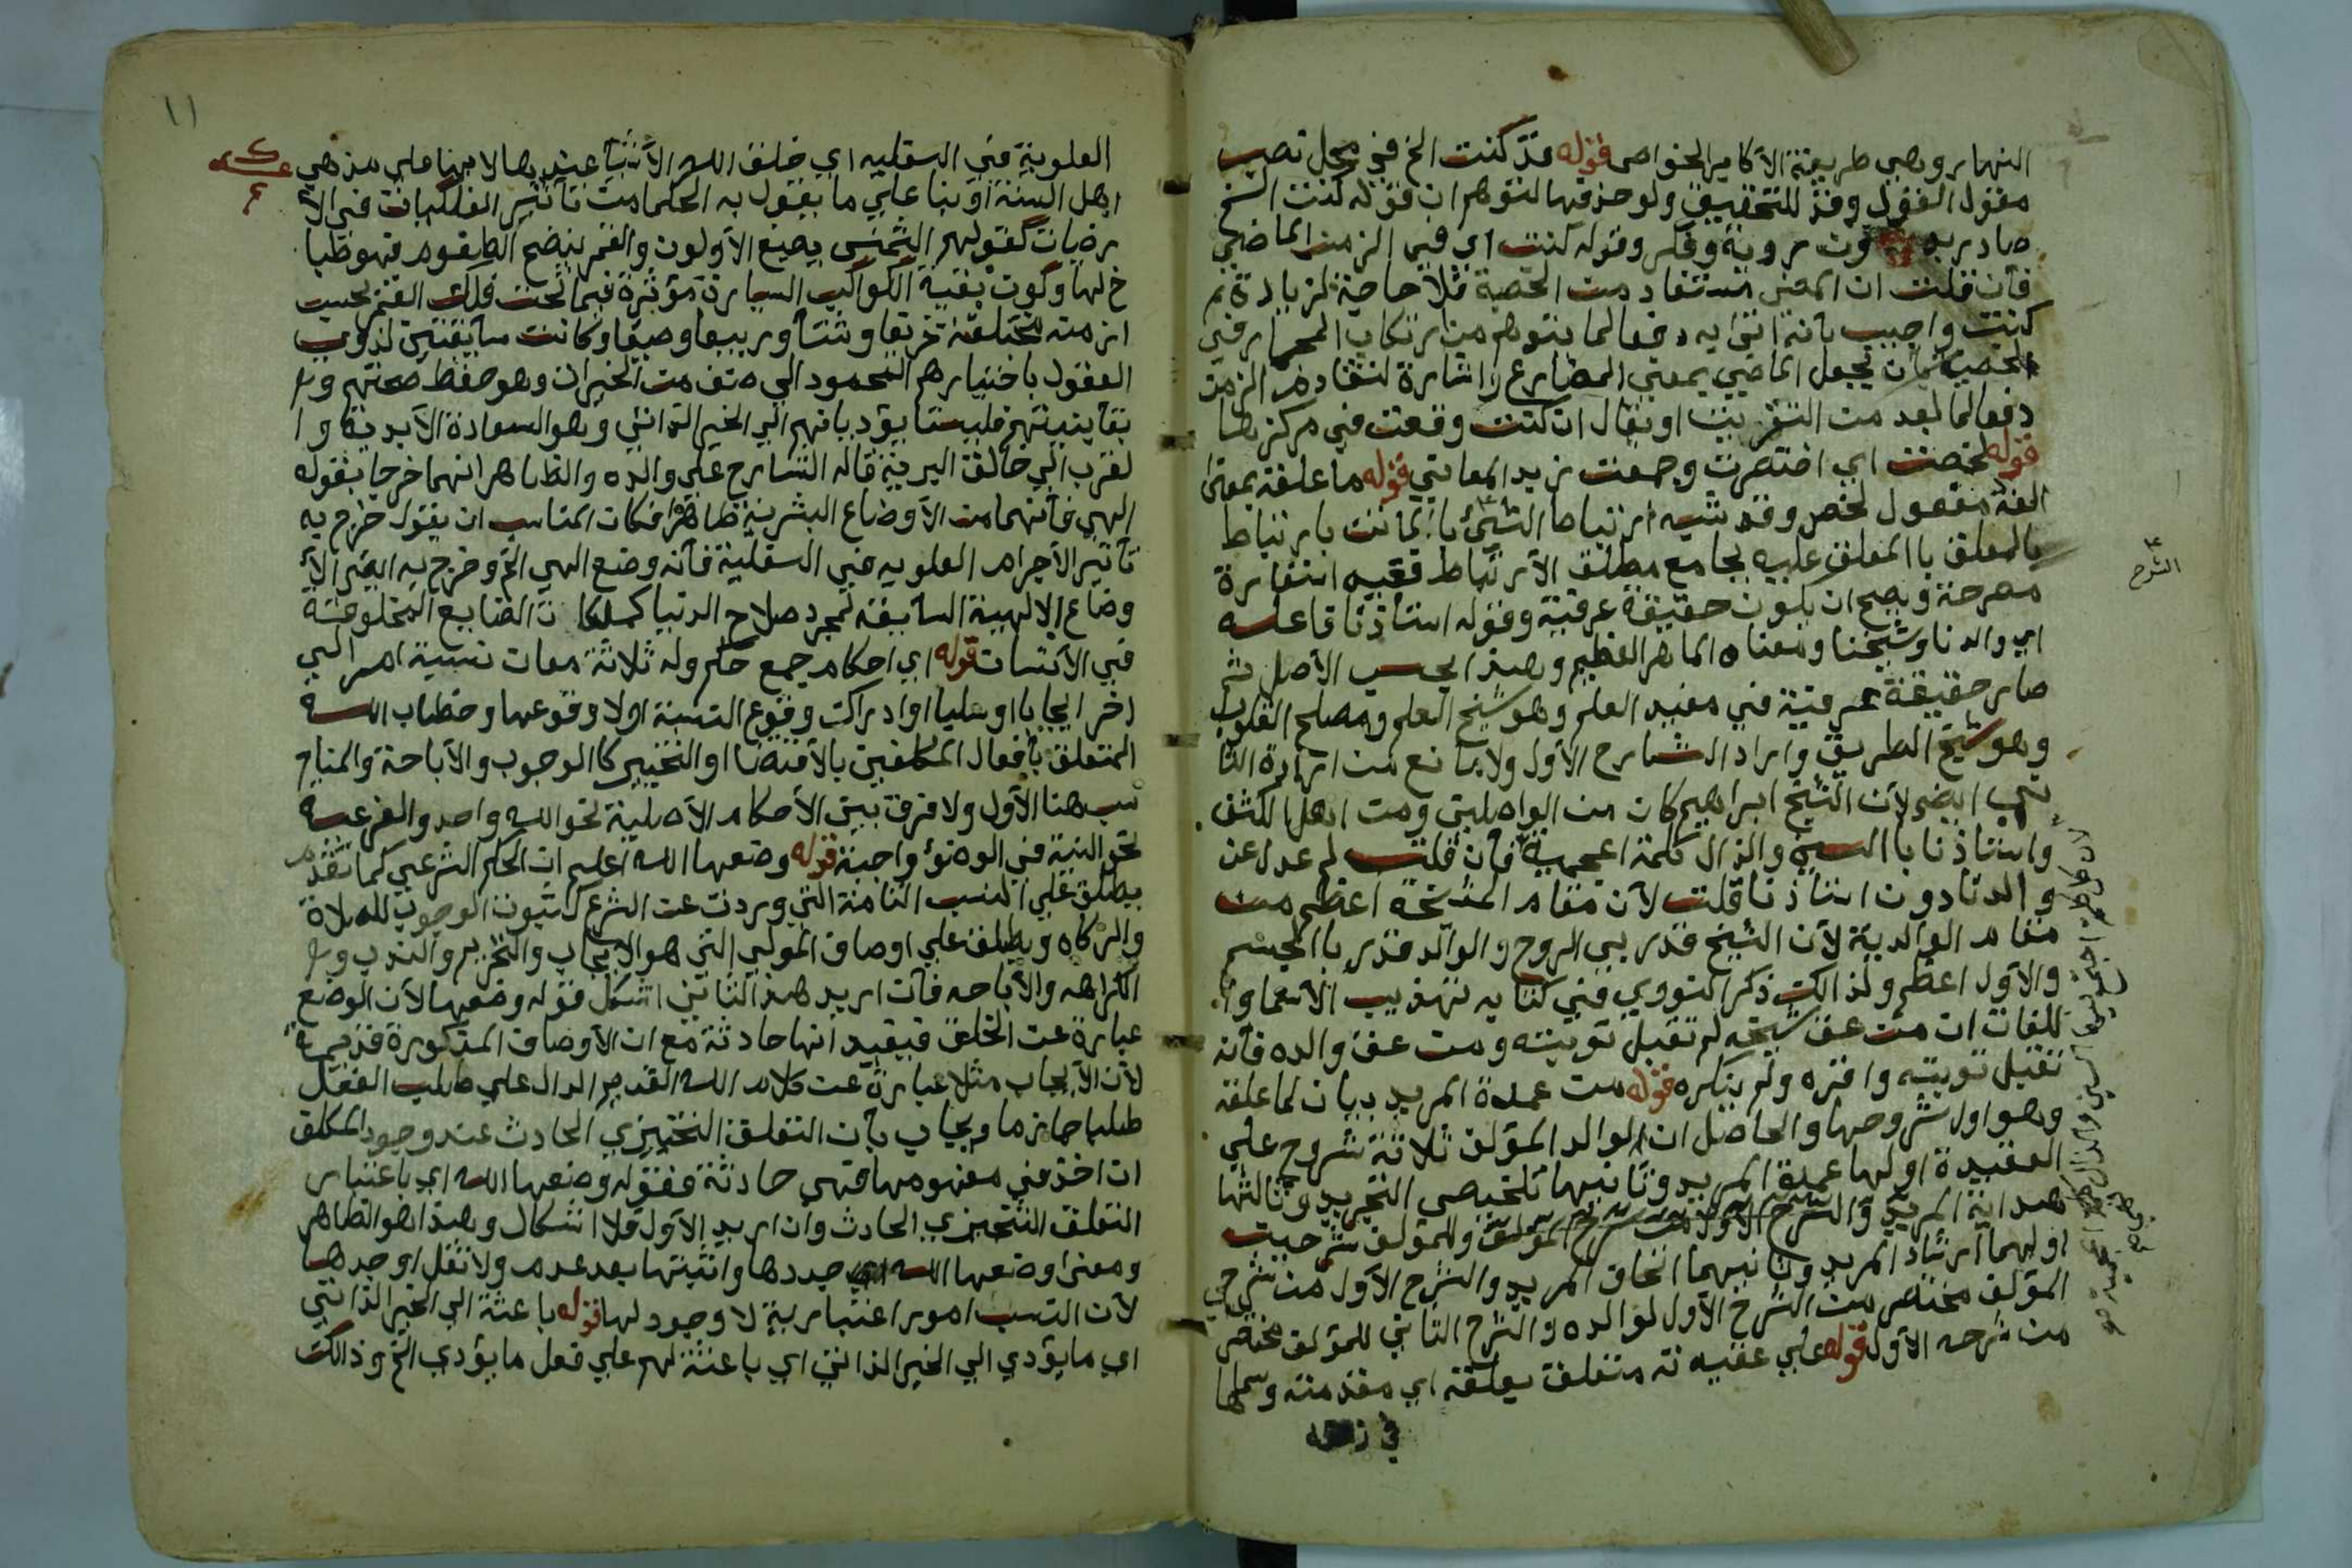 النهار وهي طريقة الأكابر الخواص قوله قد كنت الخ في محل نصب
مقول القول وقد للتحقيق ولو حذفها لتوهم ان قوله كنت الشخ
صادر به دون روية وفكر وقوله كنت اي في الزمن الماضي
فان قلت ان المضي مستفاد من الخصة فلا حاجة لزيادة
كنت واجيب بانه اتى به دفعا لما يتوهم من ارتكاب المجاز في
بان يجعل الماضي بمعنى المضارع اشارة لتقادم الزمن
دفعا لما بعد من التقريب او يقال ان كنت وقعت في مركزها
قوله لخصت اي اختصرت وجمعت زيد المعاني قوله ما علقه بمعنى
الفه مفعول لخص وقد شبه ارتباط الشئ بارتباط
بالمعلق بالمعلق عليه بجامع مطلق الأرتباط ففيه استعارة
مصرحة ويصح ان يكون حقيقة عرفية وقوله استاذنا فاعله
اي والدنا وشيخنا ومعناه الماهر العظيم وهذا بحسب الأصل ثم
صار حقيقة عرفية في مفيد العلم وهو شيخ العلم ومصلح القلوب
وهو شيخ الطريق واراد الشارح الأول ولا مانع من ارادة الثا
ني ايضا لان الشيخ ابراهيم كان من الواصلين ومن اهل الكشف
واستاذنا بالسين والذال كلمة اعجمية فان قلت لم عدل عن
والدنا دون استاذنا قلت لأن مقام المشيخه اعظم من
مقام الوالدية لأن الشيخ قد ربي الروح والوالد قد ربا الجسم
والأول اعظم ولذالك ذكر النووي في كتابه تهذيب الأسما وا
للغات ان من عق شيخه لم تقبل توبته ومن عق والده فانه
تقبل توبته واقره ولم ينكره قوله من عمدة المريد بيان لما علقه
وهو اول شروحها والحاصل ان لوالد المؤلف ثلاثة شروح علي
العقيدة اولها عمدة المريد وثانيها تلخيص التجريد وثالثها
هداية المريد والشرح الأول من شرح المؤلف وللمؤلف شرحين
اولهما ارشاد المريد وثانيهما اتحاف المريد والشرح الأول من شرحي
المؤلف مختصر من الشرح الأول لوالده والشرح الثاني للمؤلف مختصر
من شرحه الأول قوله علي عقيدته متعلق بعلقه اي مقدمته وسماها
الشرح
١١
العلوية في السفلية اي خلق الله الأشيآ عندها لا بها على مذهب
اهل السنة او بنا علي ما يقول به الحكما من تأثير الفلكيات في الا
رضيات كقولهم الشمس يصبغ الألوان والقمر ينضج الطعوم فهو ظبا
خ لها وكون بقية الكواكب السيارة مؤثرة فيما تحت فلك القمر بحسب
ازمنه مختلفة خريفا وشتآ وربيعا وصيفا وكانت سابقتين لذوي
العقول باختيارهم المحمود الي صنف من الخيران وهو حفظ صحتهم و
بقآ بنيتهم فليستا يؤديانهم الي الخير الذاتي وهو السعادة الأبدية وا
لقرب الي خالق البرية قاله الشارح علي والده والظاهر انهما خرجا بقوله
الهي فانهما من الأوضاع البشرية ظاهرا فكان المناسب ان يقول خرج به
تأثير الأجرام العلويه في السفلية فانه وضع الهي الخ وخرج به ايضا الأ
وضاع الالهية السابقة لمجرد صلاح الدنيا كملكا ت الصنايع المخلوقة
في الأنسان قوله اي احكام جمع حكم وله ثلاثة معان نسبة امر الي
اخر ايجابا او سلبا او ادراك وقوع النسبة اولا وقوعها وخطاب الله
المتعلق بأفعال المكلفين بالأقتضا او التخيير كالوجوب والأباحة والمنا
سب هنا الأول ولا فرق بين الأحكام الأصلية نحو الله واحد والفرعية
نحو النية في الوضؤ واجبة قوله وضعها الله اعلم ان الحكم الشرعي كما تقدم
يطلق علي النسب التامة التي وردت عن الشرع كثبوت الوجوب للصلاة
والزكاه ويطلق علي اوصاف المولي التي هو الايجاب والتحريم والندب و
الكراهه والأباحه فان اريد هذا الثاني اشكل قوله وضعها لأن الوضع
عبارة عن الخلق فيفيد انها حادثة مع ان الأوصاف المذكورة قديمة
لأن الأيجاب مثلا عبارة عن كلام الله القديم الدال علي طلب الفعل
طلبا جازما ويجاب بأن التعلق التنجيزي الحادث عند وجود المكلف
ان اخذ في مفهومها فهي حادثة فقوله وضعها الله اي باعتبار
التعلق التنجيزي الحادث وان اريد الأول فلا اشكال وهذا هو الظاهر
ومعنى وضعها الله اي حددها واثبتها بعد عدم ولا تقل اوجدها
لأن النسب امور اعتبارية لا وجود لها قوله باعثة الي الخير الذاتي
اي ما يؤدي الي الخير الذاتي اي باعثة لهم علي فعل ما يؤدي الخ وذالك